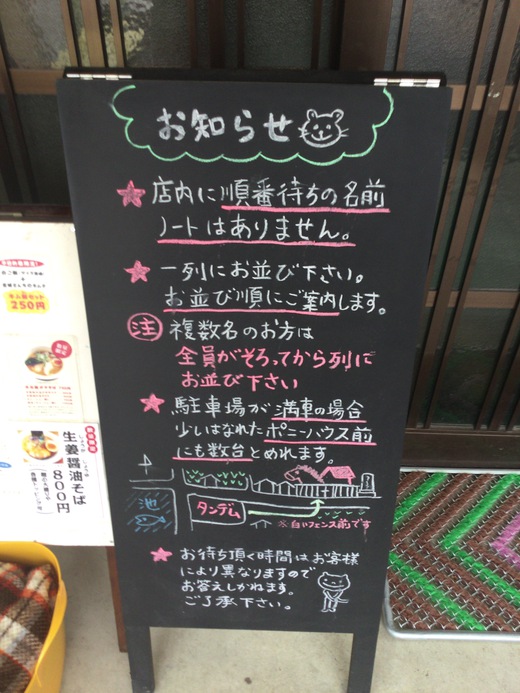 お知らせ
★ 店内に順番待ちの名前
ノートはありません。
★ 一列にお並び下さい。
お並び順にご案内します。
注 複数名のお方は
全員がそろってから列に
お並び下さい
★ 駐車場が満車の場合
少しはなれたポニーハウス前
にも数台とめれます。
池
タンデム
※白いフェンス前です
★ お待ち頂く時間はお客様
により異なりますので
お答えしかねます。
ご了承下さい。
250円
生姜醤油そば
800円